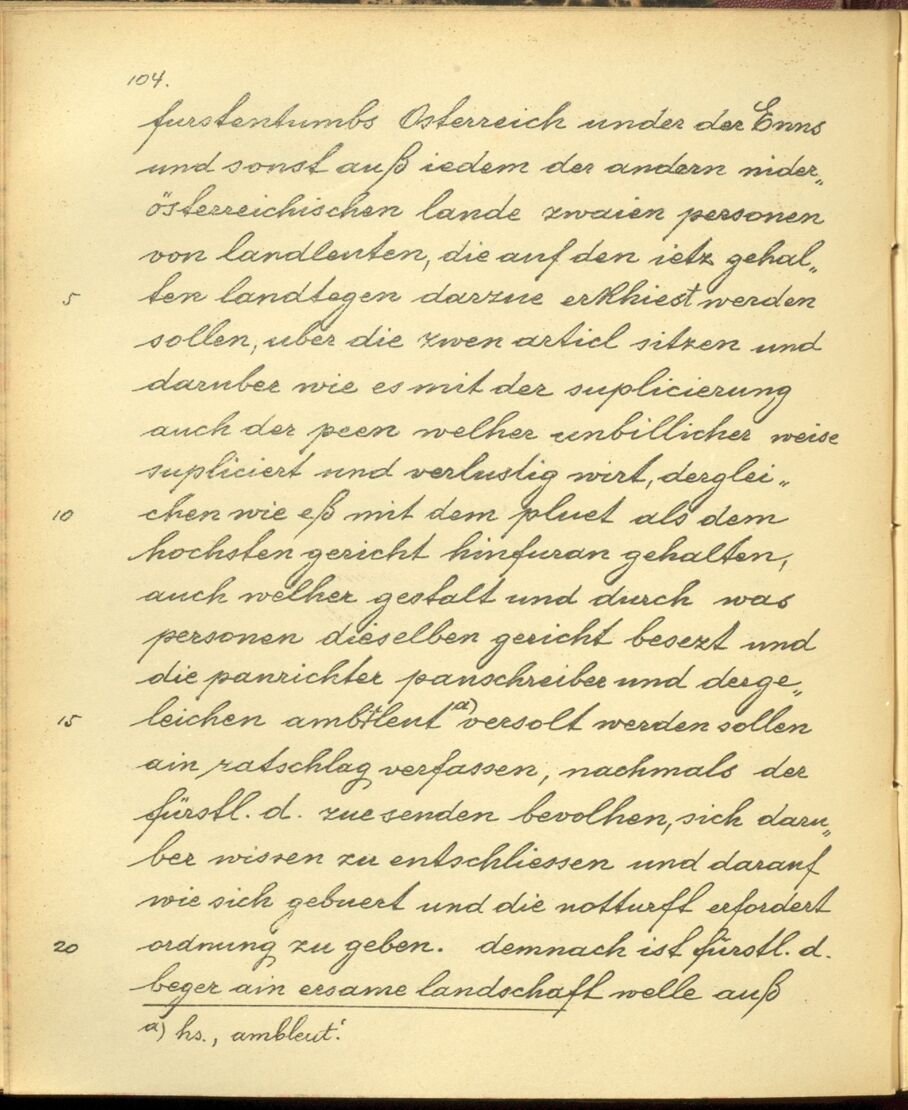 104.
furstentumbs Österreich under der Enns
und sonst auß iedem der andern nider„
österreichischen lande zwaien personen
von landleuten, die auf den ietz gehal„
5 ten landtegen darzue erkhiest werden
sollen, uber die zwen articl sitzen und
daruber wie es mit der suplicierung
auch der peen welher unbillicher weise
supliciert und verlustig wirt, derglei„
10 chen wie eß mit dem pluet als dem
hochsten gericht hinfuran gehalten,
auch welher gestalt und durch was
personen dieselben gericht besezt und
die panrichter panschreiber und derge„
15 leichen ambtleut a) versolt werden sollen
ain ratschlag verfassen, nachmals der
fürstl. d. zuesenden bevolhen, sich daru„
ber wissen zu entschliessen und darauf
wie sich gebuert und die notturft erfordert
20 ordnung zu geben. demnach ist fürstl. d.
beger ain ersame landschaft welle auß
a) hs. , ambleut.'